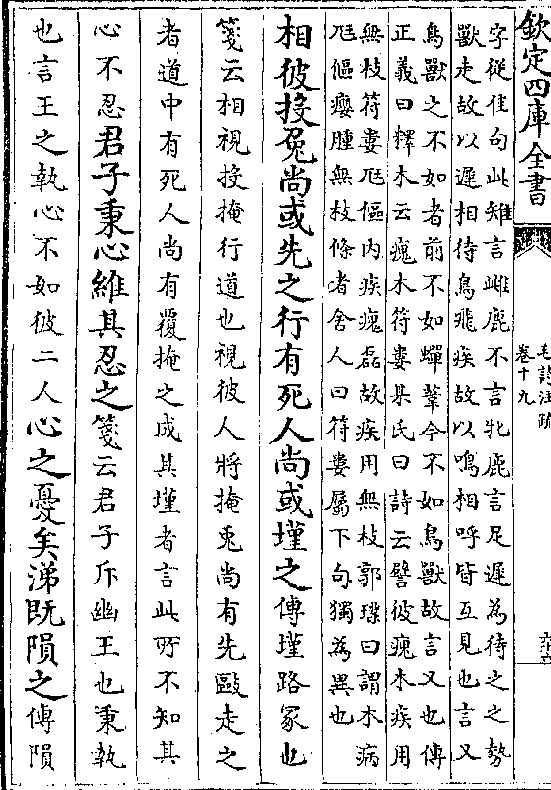 欽定四庫全書
毛詩注疏
卷十九
字從隹句此雉言雌鹿不言牝鹿言足遲為待之之勢
獸走故以遲相待鳥飛疾故以鳴相呼皆互見也言又
鳥獸之不如者前不如蟬葦今不如鳥獸故言又也傳
正義曰釋木云瘣木符婁某氏曰詩云譬彼瘣木疾用
無枝符婁尫傴內疾瘣磊故疾用無枝郭璞曰謂木病
尫傴癭腫無枝條者舍人曰符婁屬下句獨為異也
相彼投兔尚或先之行有死人尚或墐之傳墐路冢也
箋云相視投掩行道也視彼人將掩兎尚有先敺走之
者道中有死人尚有覆掩之成其墐者言此所不知其
心不忍君子秉心維其忍之箋云君子斥幽王也秉執
也言王之執心不如彼二人心之憂矣涕既隕之傳隕